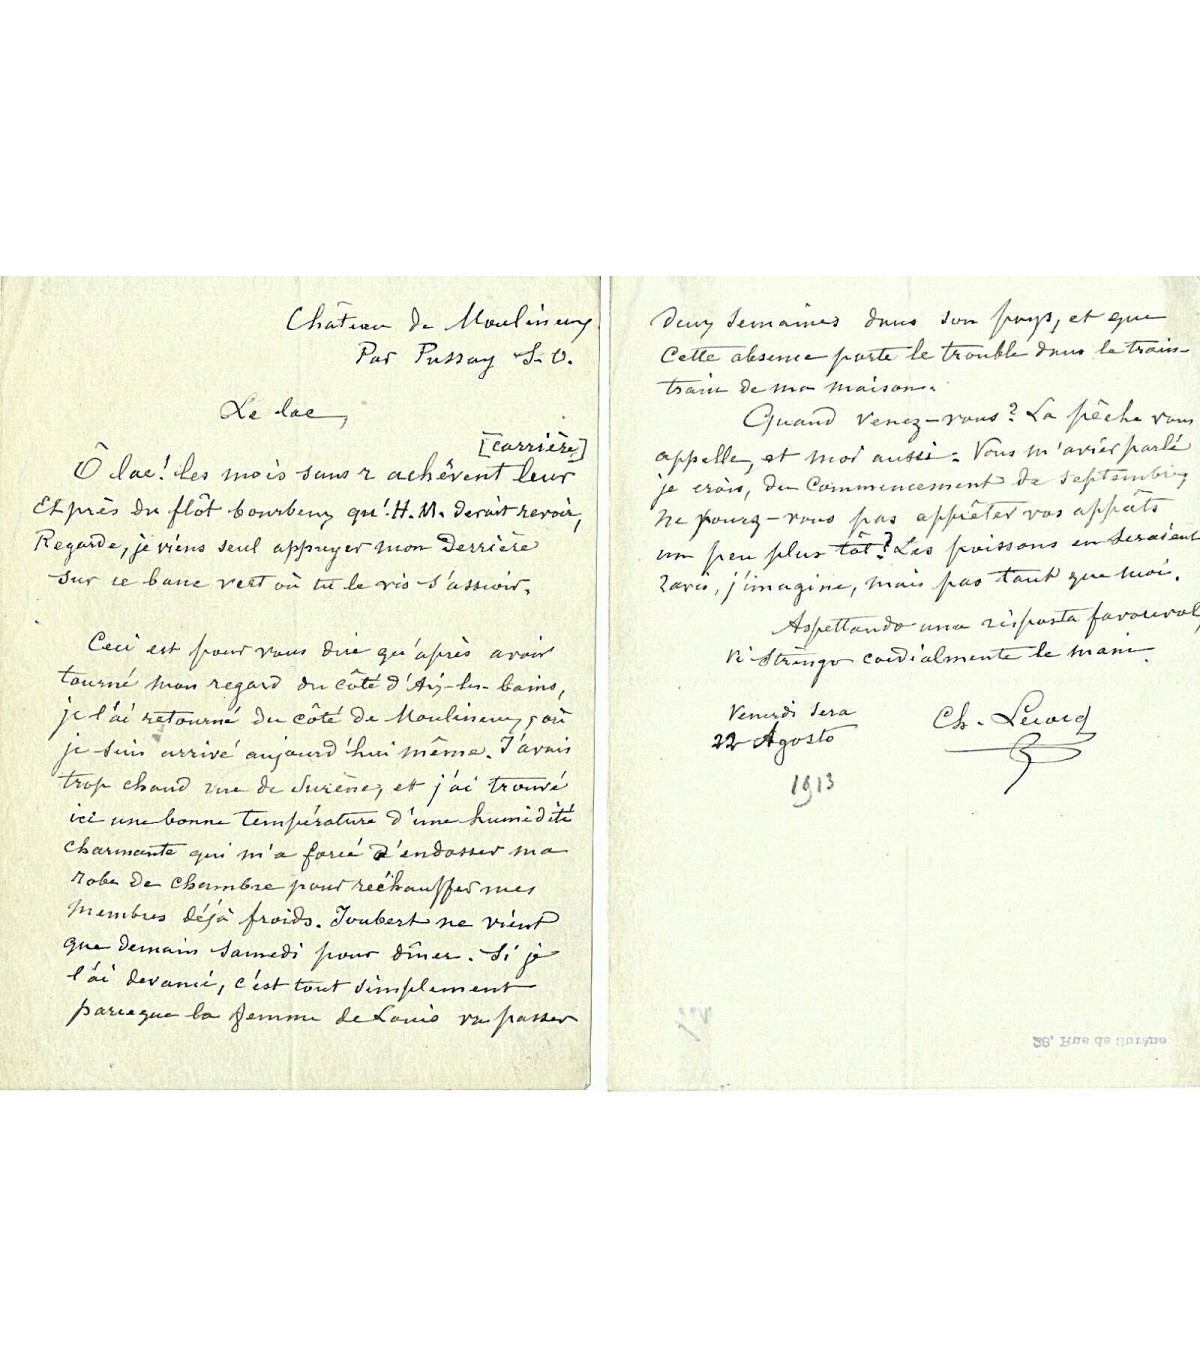 Château de Moulineux
Par Pussay S.-O.
Le lac,
[carrière]
Ô lac! les mois sans r achêvent leur
Et près du flôt bourbeux qu'H.M. devait revoir,
Regarde, je viens seul appuyer mon derrière
Sur ce banc vert où tu le vis s'assoir.
Ceci est pour vous dire qu'après avoir
tourné mon regard du côté d'Aix-les-bains,
je l'ai retourné du côté de Moulineux, où
je suis arrivé aujourd'hui même. J'avais
trop chaud rue de Surène, et j'ai trouvé
ici une bonne température d'une humidité
charmante qui m'a forcé d'endosser ma
robe de chambre pour réchauffer mes
membres déjà froids. Joubert ne vient
que demain samedi pour dîner. Si je
l'ai devancé, c'est tout simplement
parceque la femme de Louis va passer
deux semaines dans son pays, et que
cette absence porte le trouble dans le train-
train de ma maison.
Quand venez-vous? La pêche vous
appelle, et moi aussi. Vous m'aviez parlé
je crois, du commencement de septembre,
ne pourez-vous pas apprêter vos appâts
un peu plus tôt? Les poissons en seraient
ravis, j'imagine, mais pas tant que moi.
Aspettando una risposta favorevol,
vi stringo cordialmente le mani.
Venerdi sera
22 Agosto
1913
Ch. Lecocq
28, Rue de Surène